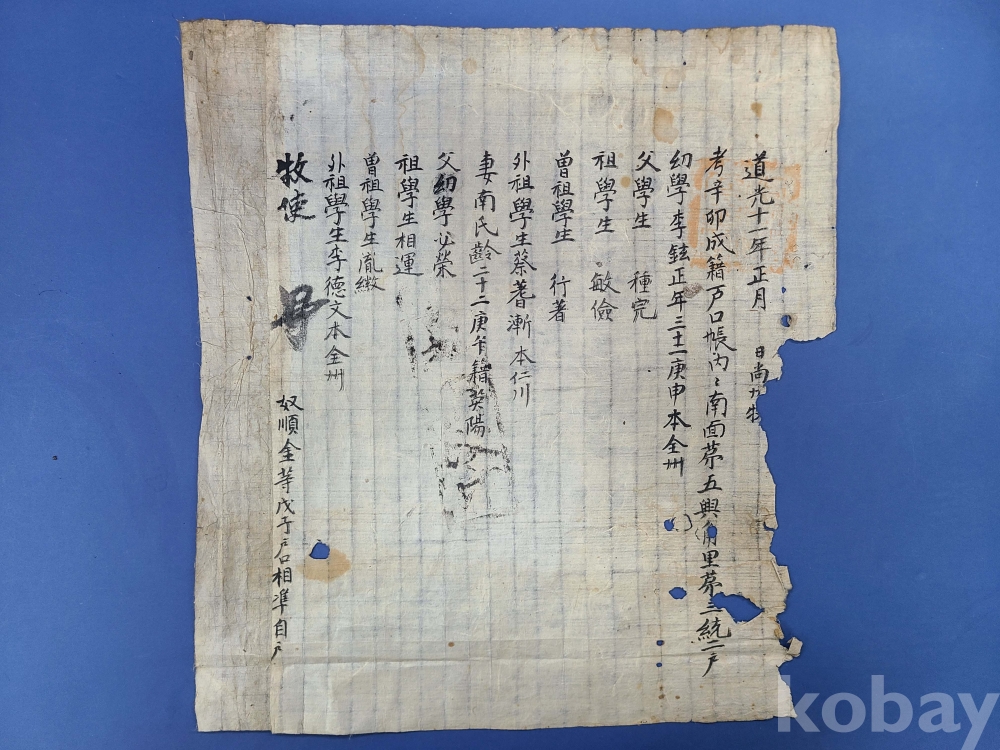 道光十一年正月 日尚州牧
考辛卯成籍戶口帳內內南面第五興角里第三統二戶
幼學李鉉正年三十二庚申本全州
父學生 種完
祖學生 敏儉
曾祖學生 行著
外祖學生蔡蓍漸本仁川
妻南氏齡二十二庚午籍英陽
父幼學必榮
祖學生相運
曾祖學生胤緻
外祖學生李德文本全州
牧使
奴順金等戊子戶口相準自戶
kobay